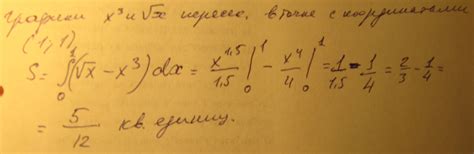 Графики x³ и √x пересек. в точке с координатами
(1, 1)
S = ∫₀¹(√x − x³)dx = x^1,5/1,5 |₀¹ − x⁴/4 |₀¹ = 1/1,5 − 1/4 = 2/3 − 1/4 =
= 5/12 кв. единиц.